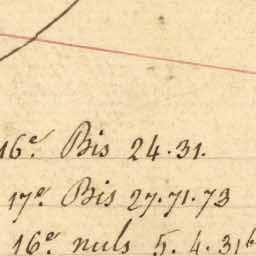 16e. Bis 24.31.
17e. Bis 27.71.73
16e. nuls 5. 4. 31b